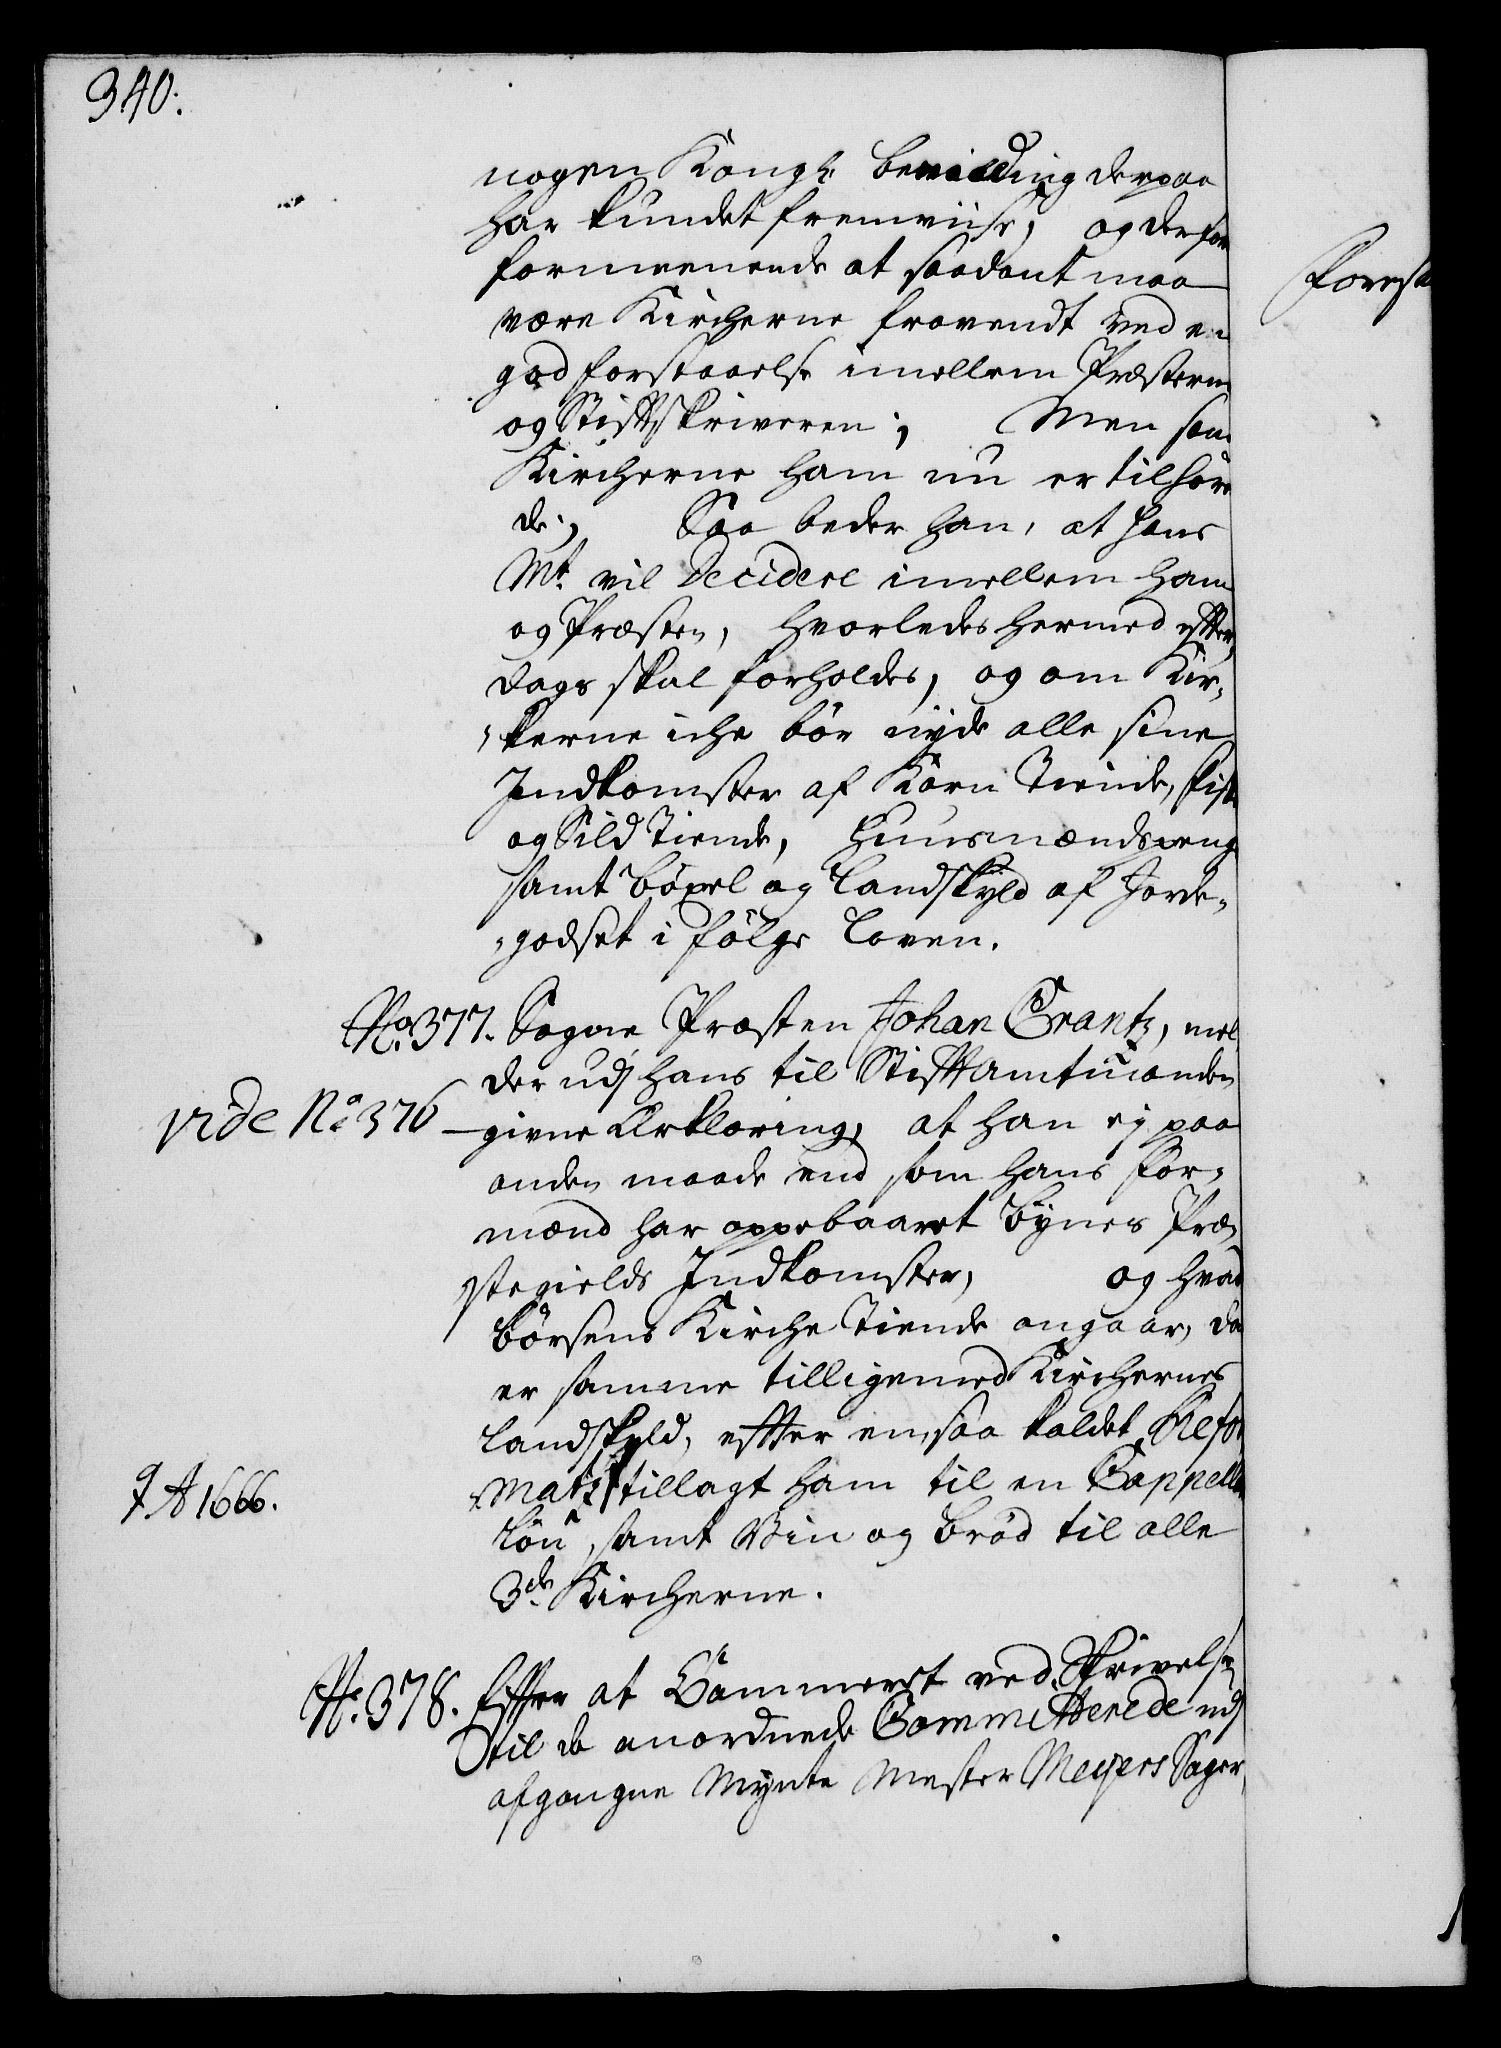 340.
nogen Kongl. bevilding derpaa
har kundet fremviise, og derfor
formeenende at saadant maa
være Kircherne fravendt ved en
god forstaaelse imellem Præsterne
og Stiftskriveren; Men som
Kircherne ham nu er tilhøre
de; Saa beder han, at hans
Mt. vil Decidere imellem ham
og Præsten, hvorledes hermed efter
dags skal forholdes, og om Kir-
kerne iche bør nyde alle sine
Indkomster af Korn Tiende, fisk
og Sild Tiende, Huusmændspeng
samt bøxel og Landskyld af Jorde-
godset i følge Loven.
No. 377. Sogne Præsten Johan Crantz, mel
der udj hans til Stiftamtmanden
vide No. 376 givne Erklæring, at han ej paa
anden maade end som hans for-
mænd har oppebaaret bynes Præ
stegields Indkomster, og hvad
børsens Kirche Tiende angaar, da
er samme tilligemed Kirchernes
Landskyld, efter en saa kaldet Refor
matz tillagt ham til en Cappellan
† A 1666.
Løn, samt Viin og brød til alle
3de Kircherne.
No. 378. Efter at Cammeret ved Skrivelse
til de anordnede Committerede udj
afgangne Mynte Mester Meyers Sager,
Forest